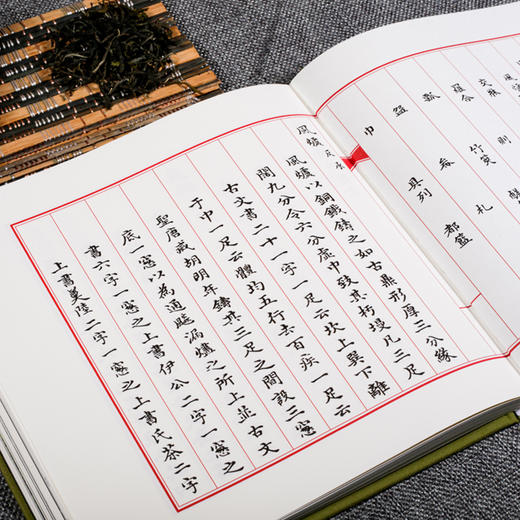 交牀
羅合 則
瓢 竹筴
盌 畚 札
巾 具列 都籃
風爐
風爐以銅鐵鑄之如古鼎形厚三分緣
闊九分令六分虛中致其杇墁凡三足
古文書二十一字一足云坎上巽下離
于中一足云體均五行去百疾一足云
聖唐滅胡明年鑄其三足之間設三窻
底一窻以為通飈漏燼之所上並古文
書六字一窻之上書伊公二字一窻之
上書羹陸二字一窻之上書氏茶二字